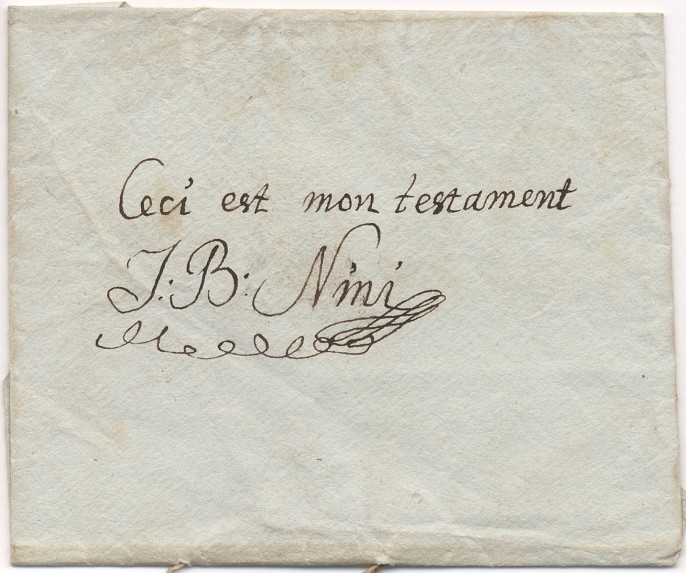 Ceci est mon testament
J: B: Nini